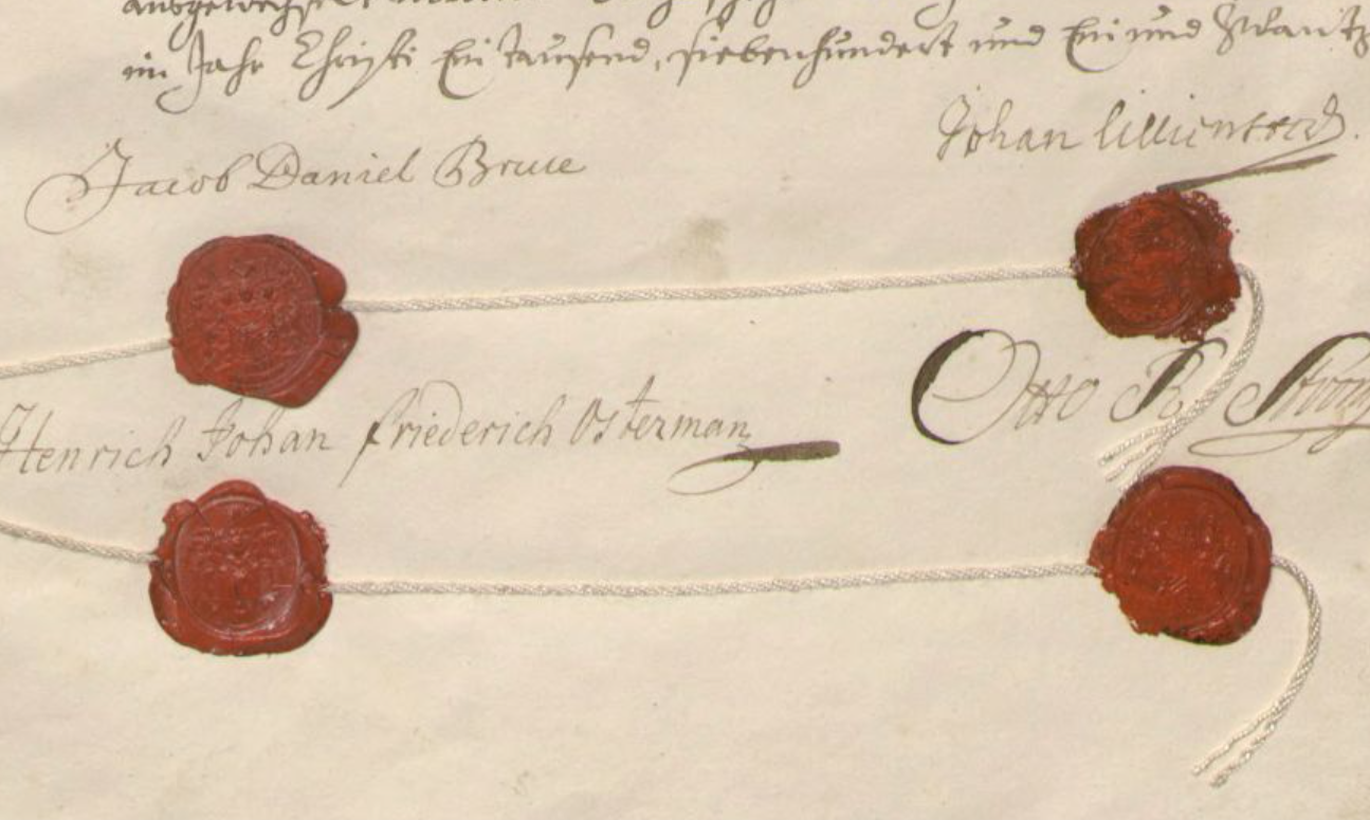 im Jahr Christi Ein tausend, siebenhundert und Ein und Zwantz
Johan Lillienstedt.
Jacob Daniel Bruce
Otto R Ström
Henrich Johan friederich Osterman